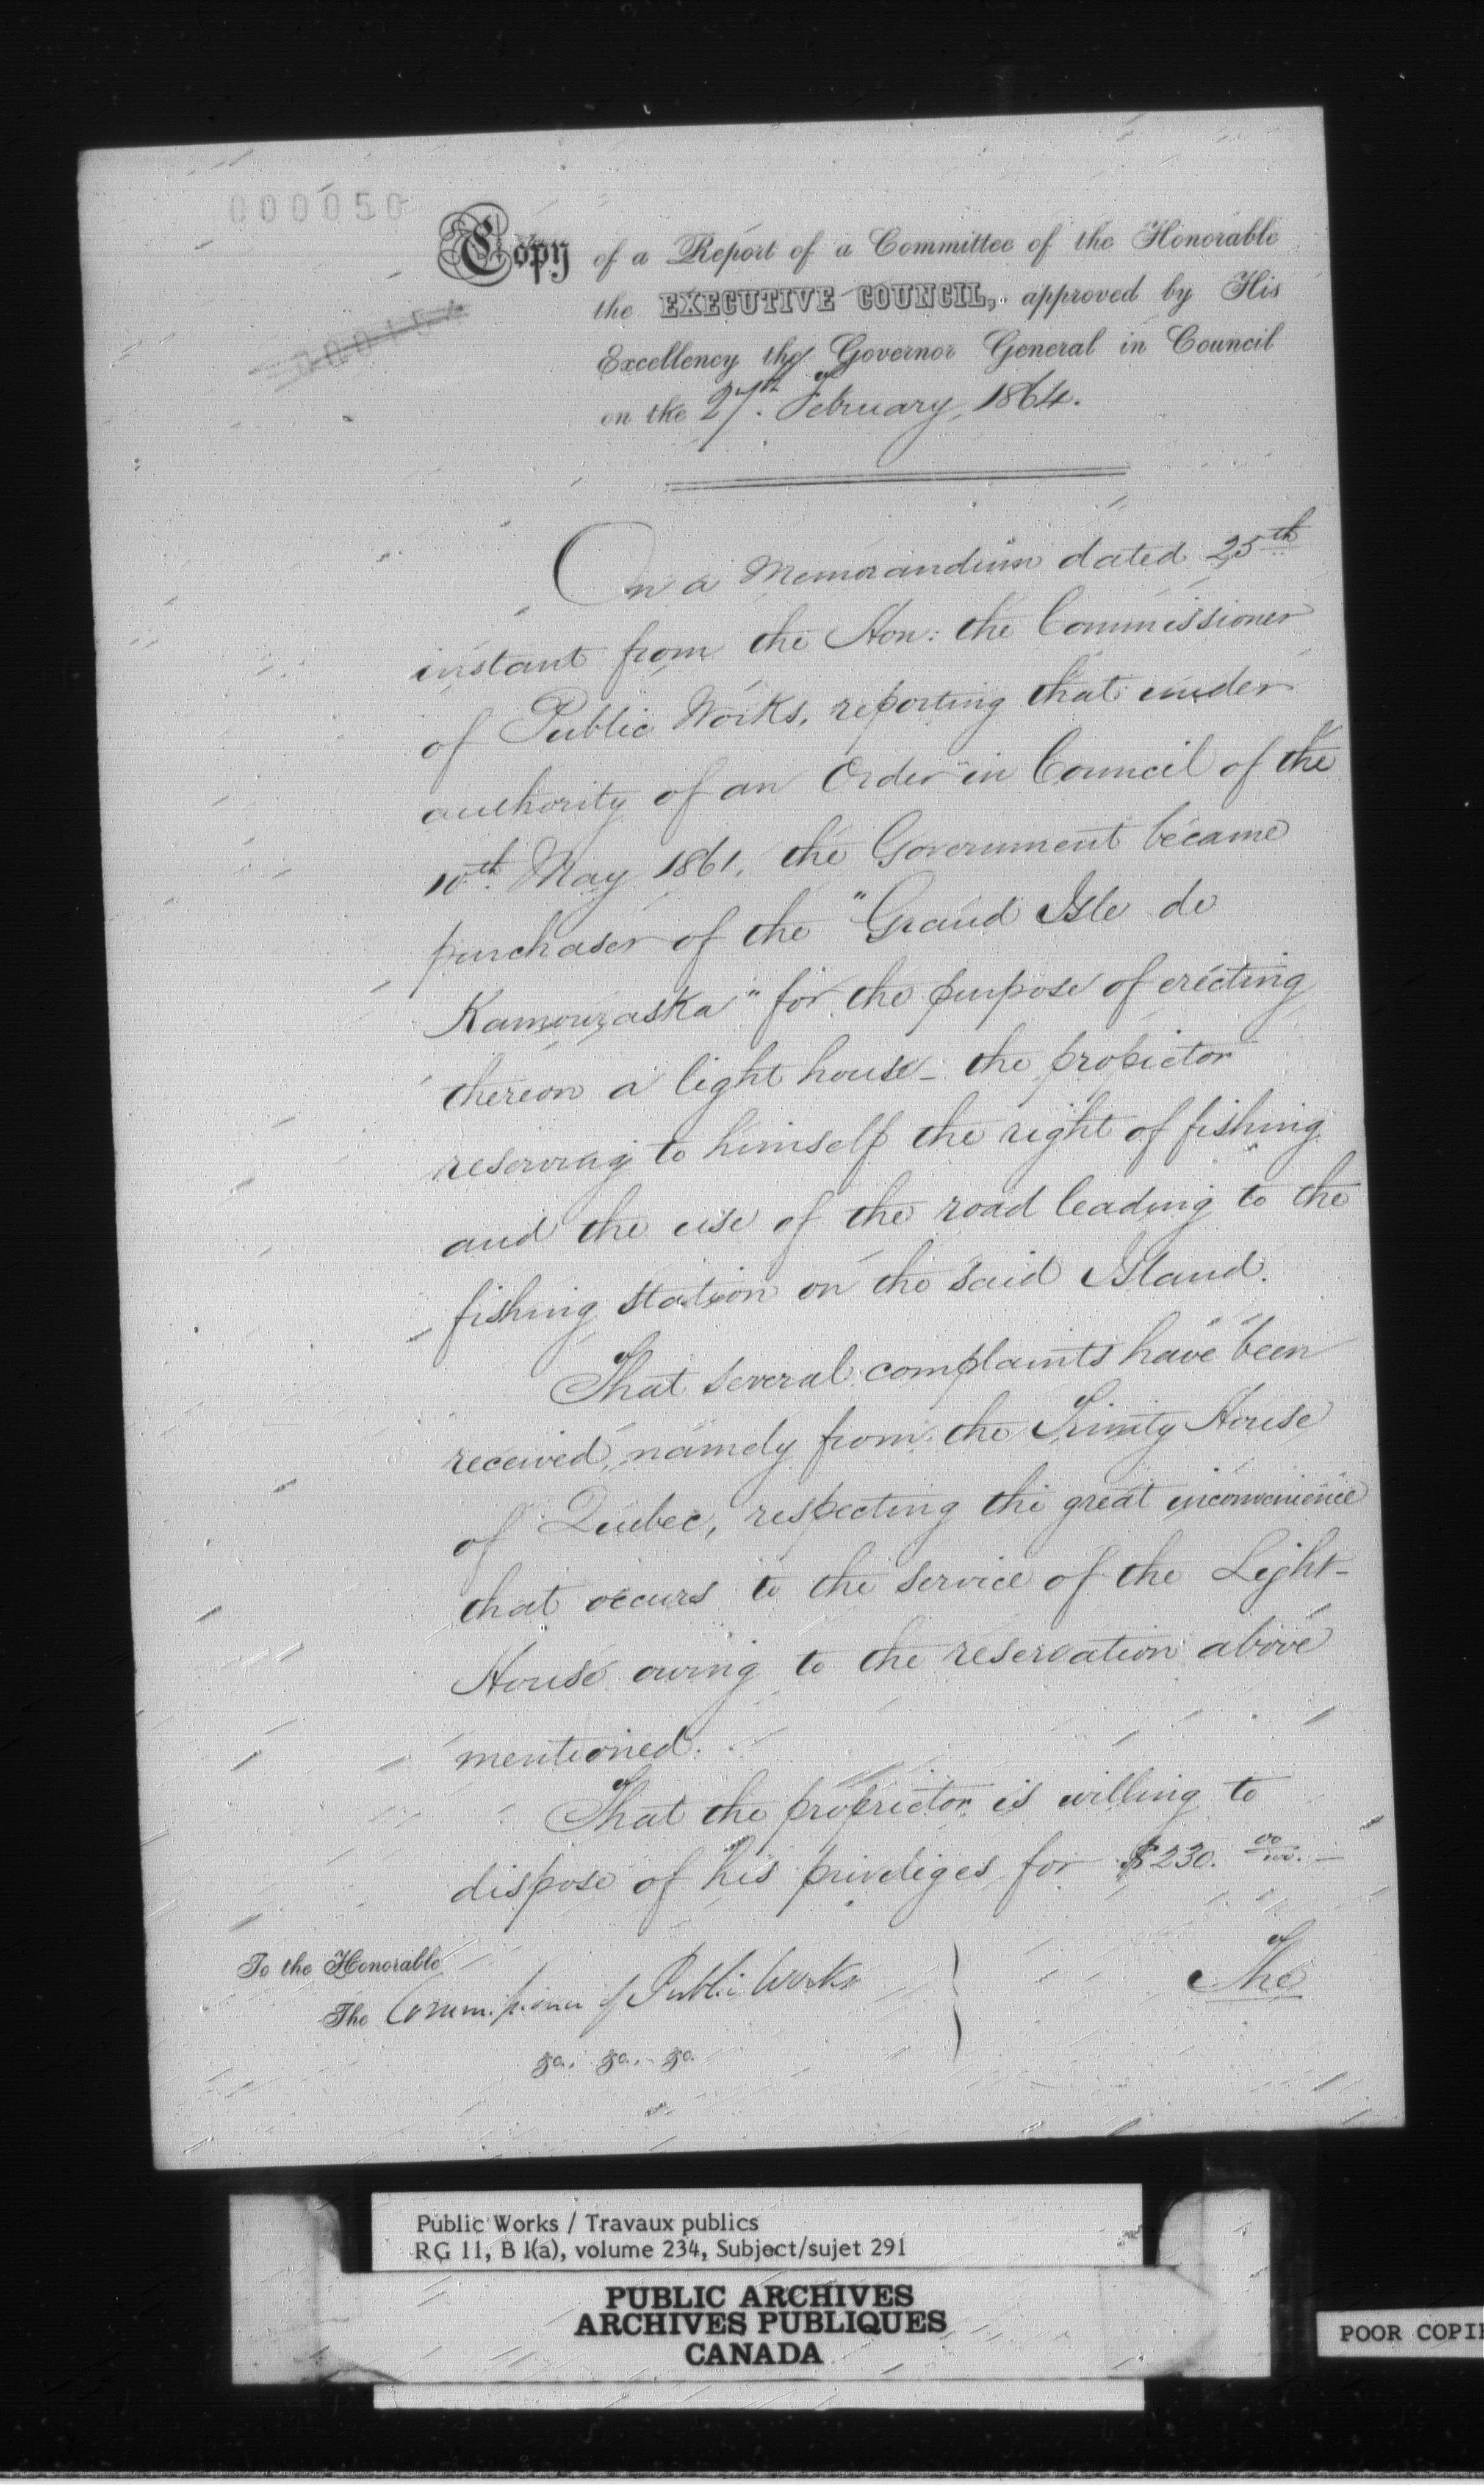 000050
Copy of a Report of a Committee of the Honorable
the EXECUTIVE COUNCIL, approved by His
Excellency the Governor General in Council
on the 27th. February, 1864.
On a Memorandum dated 25th
instant from the Hon: the Commissioner
of Public Works, reporting that under
authority of an Order in Council of the
10th. May 1861, the Government became
purchaser of the "Grand Isle de
Kamouraska" for the purpose of erecting
thereon a light house - the propietor
reserving to himself the right of fishing
and the use of the road leading to the
fishing station on the said Island.
That several complaints have been
received, namely from the Trinity House
of Quebec, respecting the great inconvenience
that occurs to the service of the Light-
House owing to the reservation above
mentioned.
That the proprietor is willing to
dispose of his priveliges for $230. 00/100. -
To the Honorable
The Commissioner of Public Works
&c. &c. &c.
The
Public Works / Travaux publics
RG 11, B 1(a), volume 234, Subject/sujet 291
PUBLIC ARCHIVES
ARCHIVES PUBLIQUES
CANADA
POOR COPI